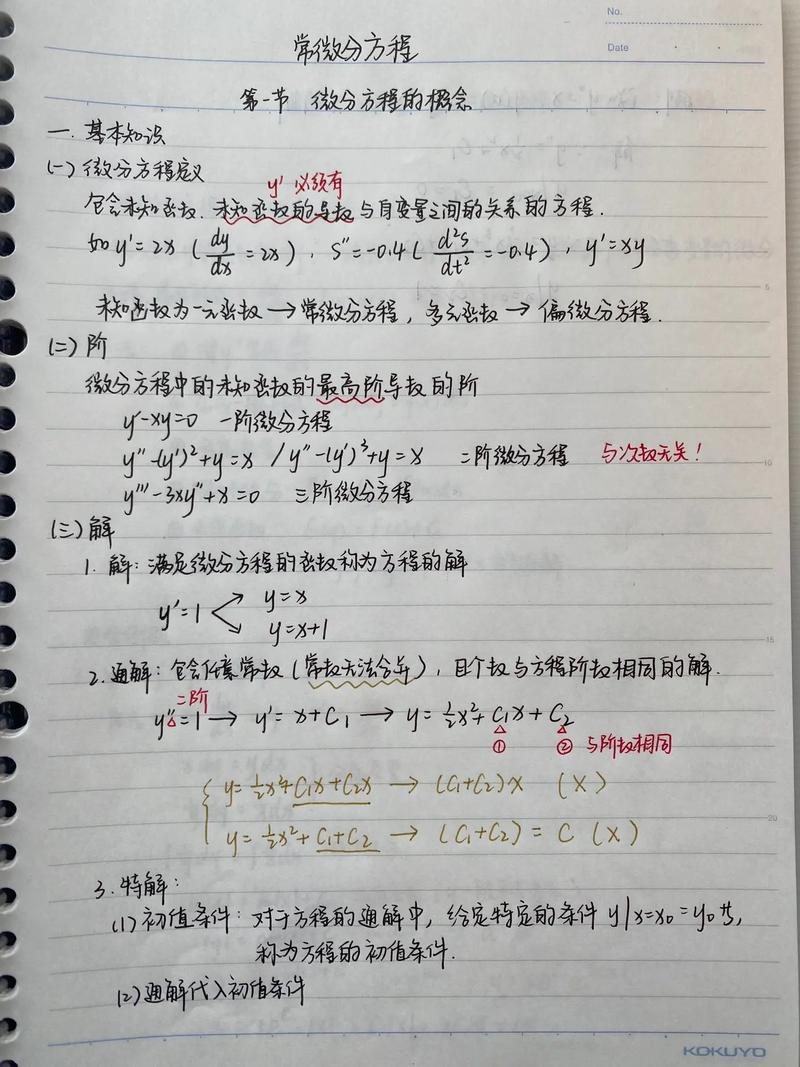 No.
Date
常微分方程
第一节 微分方程的概念
一. 基本知识
(一) 微分方程定义
y' 必须有
包含未知函数、未知函数的导数与自变量之间的关系的方程.
如 y'=2x (dy/dx=2x), S''=-0.4 (d²s/dt²=-0.4), y'=xy
未知函数为一元函数→常微分方程, 多元函数→偏微分方程.
(二) 阶
微分方程中的未知函数的最高阶导数的阶
y'-xy=0 一阶微分方程
y''-(y')²+y=x / y''-(y')³+y=x 二阶微分方程 与次数无关!
y'''-3xy''+x=0 三阶微分方程
(三) 解
1. 解: 满足微分方程的函数称为方程的解
y'=1 < y=x
y=x+1
2. 通解: 包含任意常数 (常数无法合并), 且个数与方程阶数相同的解.
二阶
y''=1 → y'=x+C₁ → y=½x²+C₁x+C₂
① ② 与阶数相同
{ y=½x²+C₁x+C₂x → (C₁+C₂)x (X)
y=½x²+C₁+C₂ → (C₁+C₂)=C (X)
3. 特解:
(1) 初值条件: 对于方程的通解中, 给定特定的条件 y|x=x₀=y₀ 等,
称为方程的初值条件.
(2) 通解代入初值条件
5
10
15
20
KOKUYO